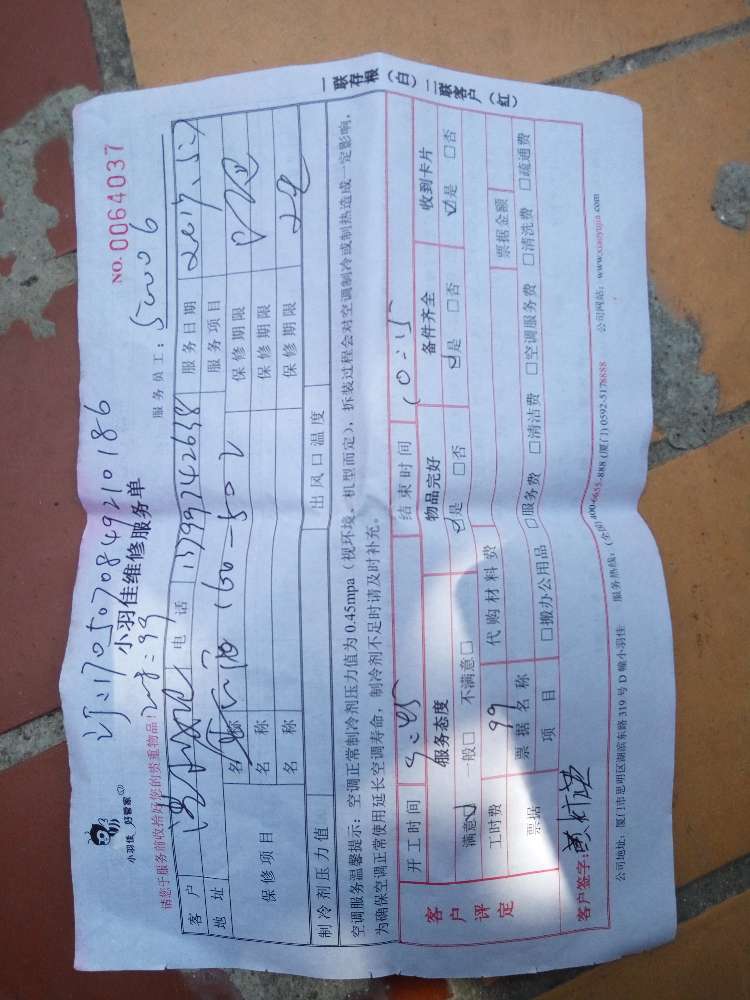 小羽佳 好管家
订:170507084921018​6
2次:99
小羽佳维修服务单
NO. 0064037
请您于服务前收拾好您的贵重物品!
服务员工:
客户 电话 服务日期
地址 160-502 服务项目
保修项目 名称 保修期限
名称 保修期限
名称 保修期限
制冷剂压力值 出风口温度
空调服务温馨提示:空调正常制冷剂压力值为0.45mpa(视环境、机型而定),拆装过程会对空调制冷或制热造成一定影响,
为确保空调正常使用延长空调寿命,制冷剂不足时请及时补充。
客户评定
开工时间 结束时间 10:15
服务态度 物品完好 备件齐全 收到卡片
满意☑ 一般□ 不满意□ ☑是 □否 ☑是 □否 ☑是 □否
工时费 99 代购材料费
票据 票据名称 票据金额
项目 □搬办公用品 □服务费 □清洁费 □空调服务费 □清洗费 □疏通费
客户签字:
公司地址:厦门市思明区湖滨东路319号D幢小羽佳 服务热线:(全国)400-6655-888 (厦门) 0592-5178888 公司网站:www.xiaoyujia.com
一联存根(白)二联客户(红)